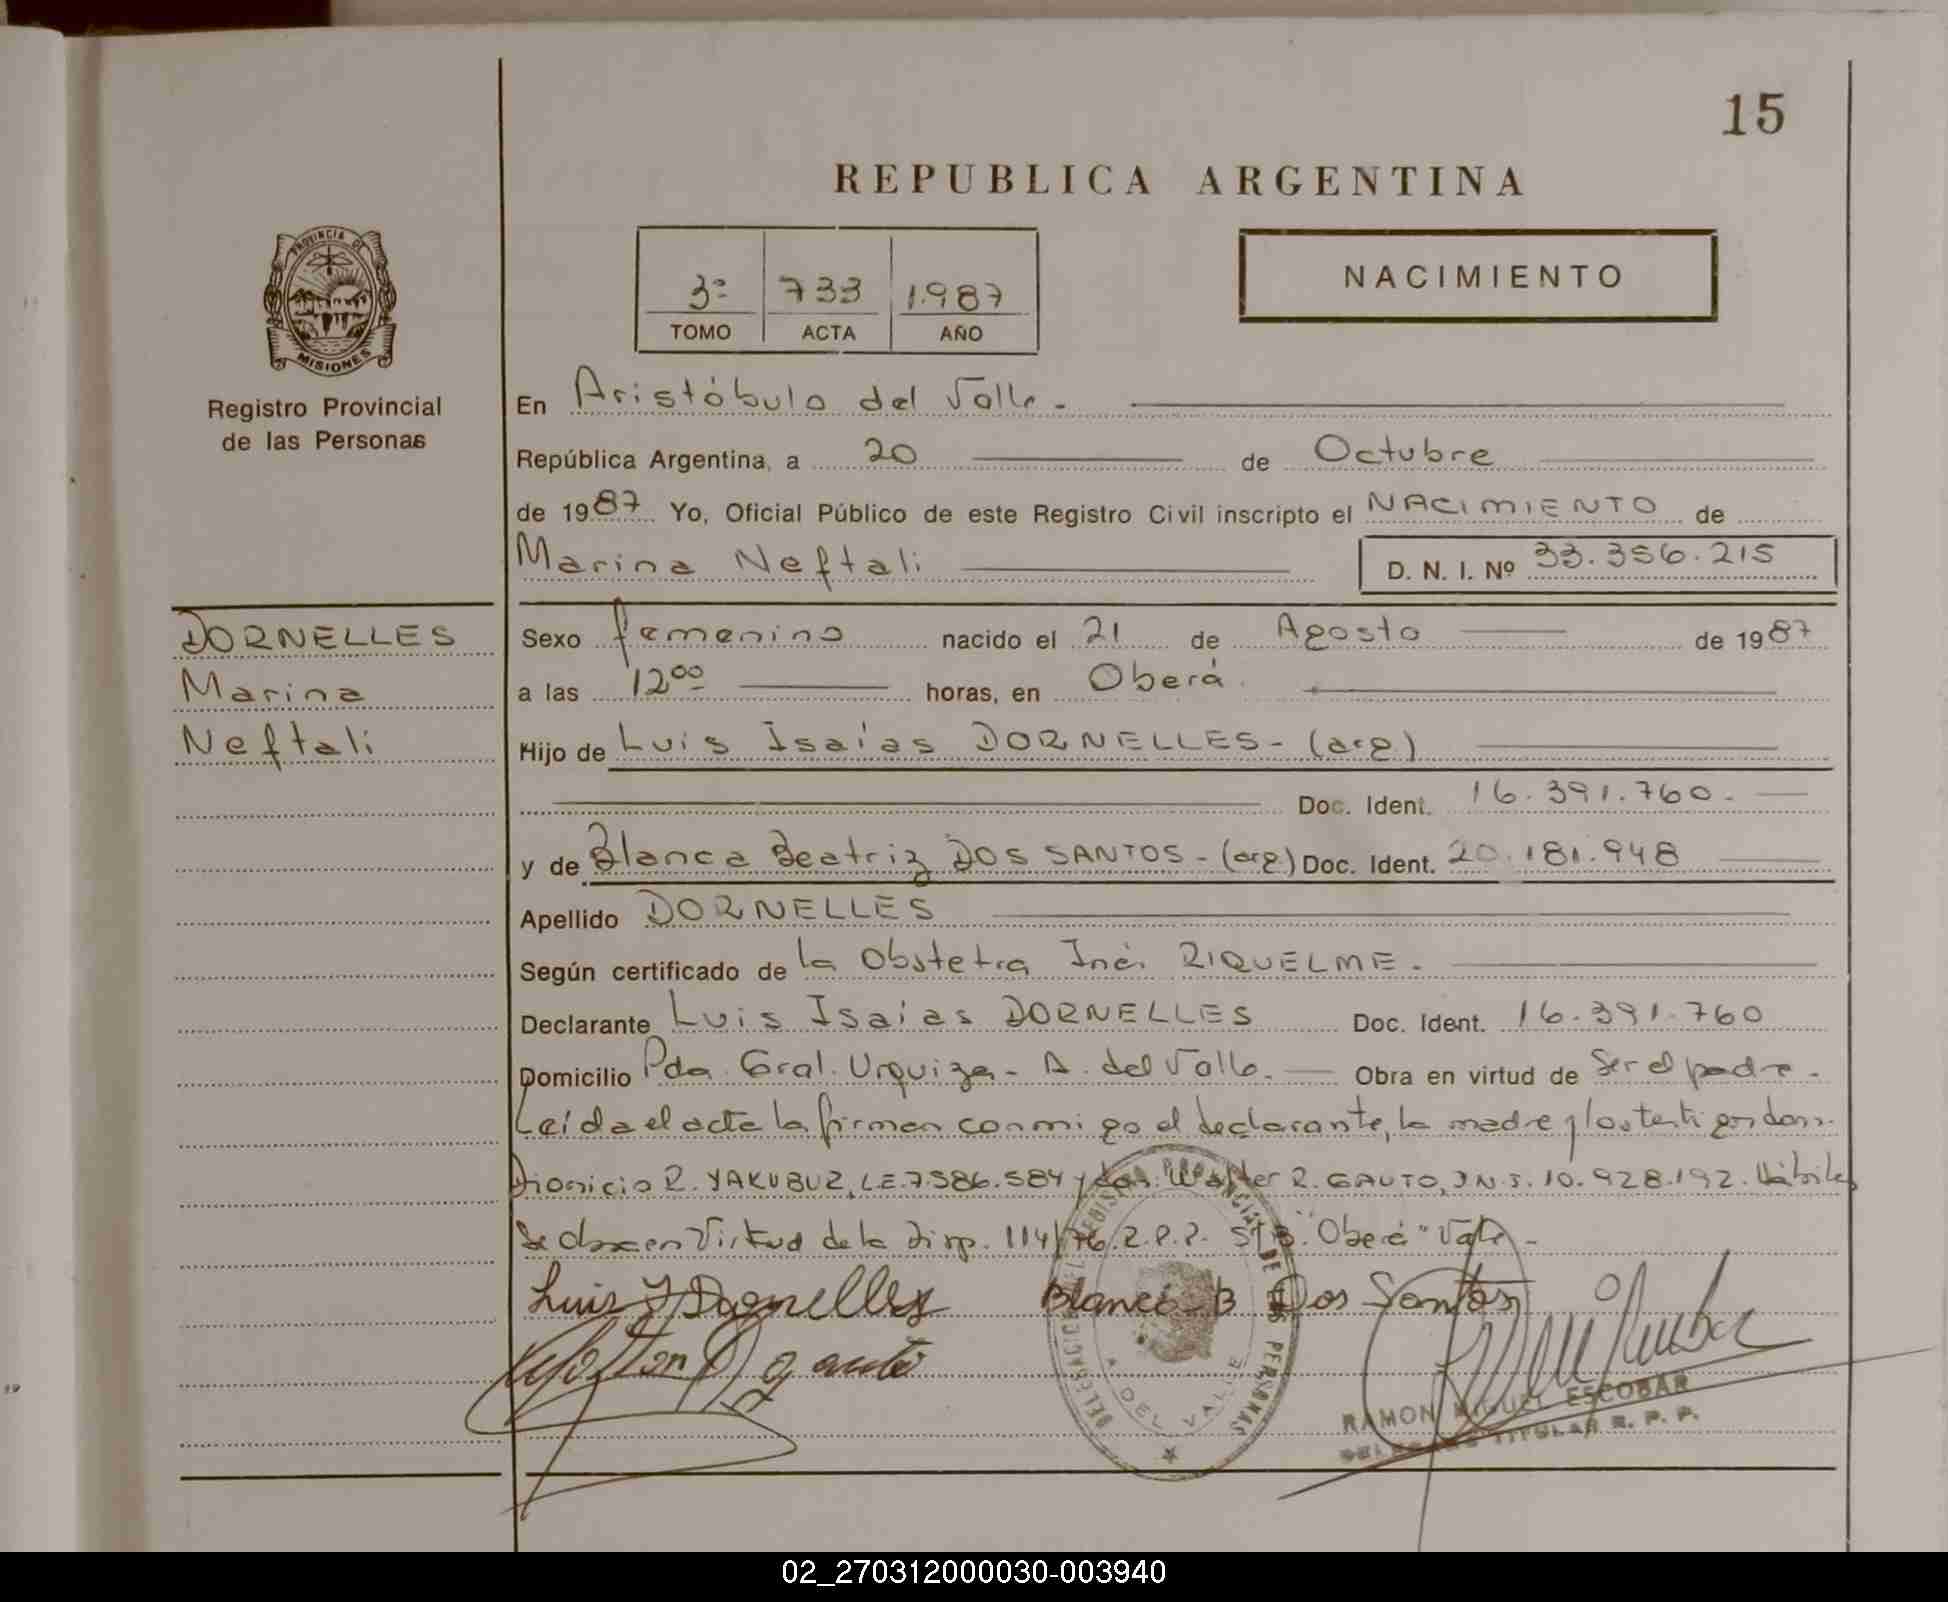 15
REPUBLICA ARGENTINA
PROVINCIA DE
MISIONES
Registro Provincial
de las Personas
3º 733 1.987
TOMO ACTA AÑO
NACIMIENTO
En Aristóbulo del Valle.-
República Argentina, a 20 de Octubre
de 1987 Yo, Oficial Público de este Registro Civil inscripto el NACIMIENTO de
Marina Neftali D. N. I. Nº 33.356.215
DORNELLES
Marina
Neftali
Sexo femenino nacido el 21 de Agosto de 1987
a las 12⁰⁰ horas, en Oberá.
Hijo de Luis Isaías DORNELLES- (arg)
Doc. Ident. 16.391.760.-
y de Blanca Beatriz DOS SANTOS-(arg) Doc. Ident. 20.181.948
Apellido DORNELLES
Según certificado de la Obstetra Inés RIQUELME.
Declarante Luis Isaías DORNELLES Doc. Ident. 16.391.760
Domicilio Pda. Gral. Urquiza- A. del Valle.- Obra en virtud de Ser el padre.
Leída el acta la firman conmigo el declarante, la madre y los testigos don:
Dionicio R. YAKUBUZ, L.E.7.586.584 y don: Walter R. GAUTO, D.N.I. 10.928.192. Hábiles
Se obra en Virtud de la Disp. 114/76.R.P.P. S/B. "Oberá" Vale-
Luis I Dornelles Blanca B Dos Santos
DELEGACION DEL REGISTRO PROVINCIAL DE LAS PERSONAS
A. DEL VALLE
RAMON MIGUEL ESCOBAR
DELEGADO TITULAR R. P. P.
02_270312000030-003940